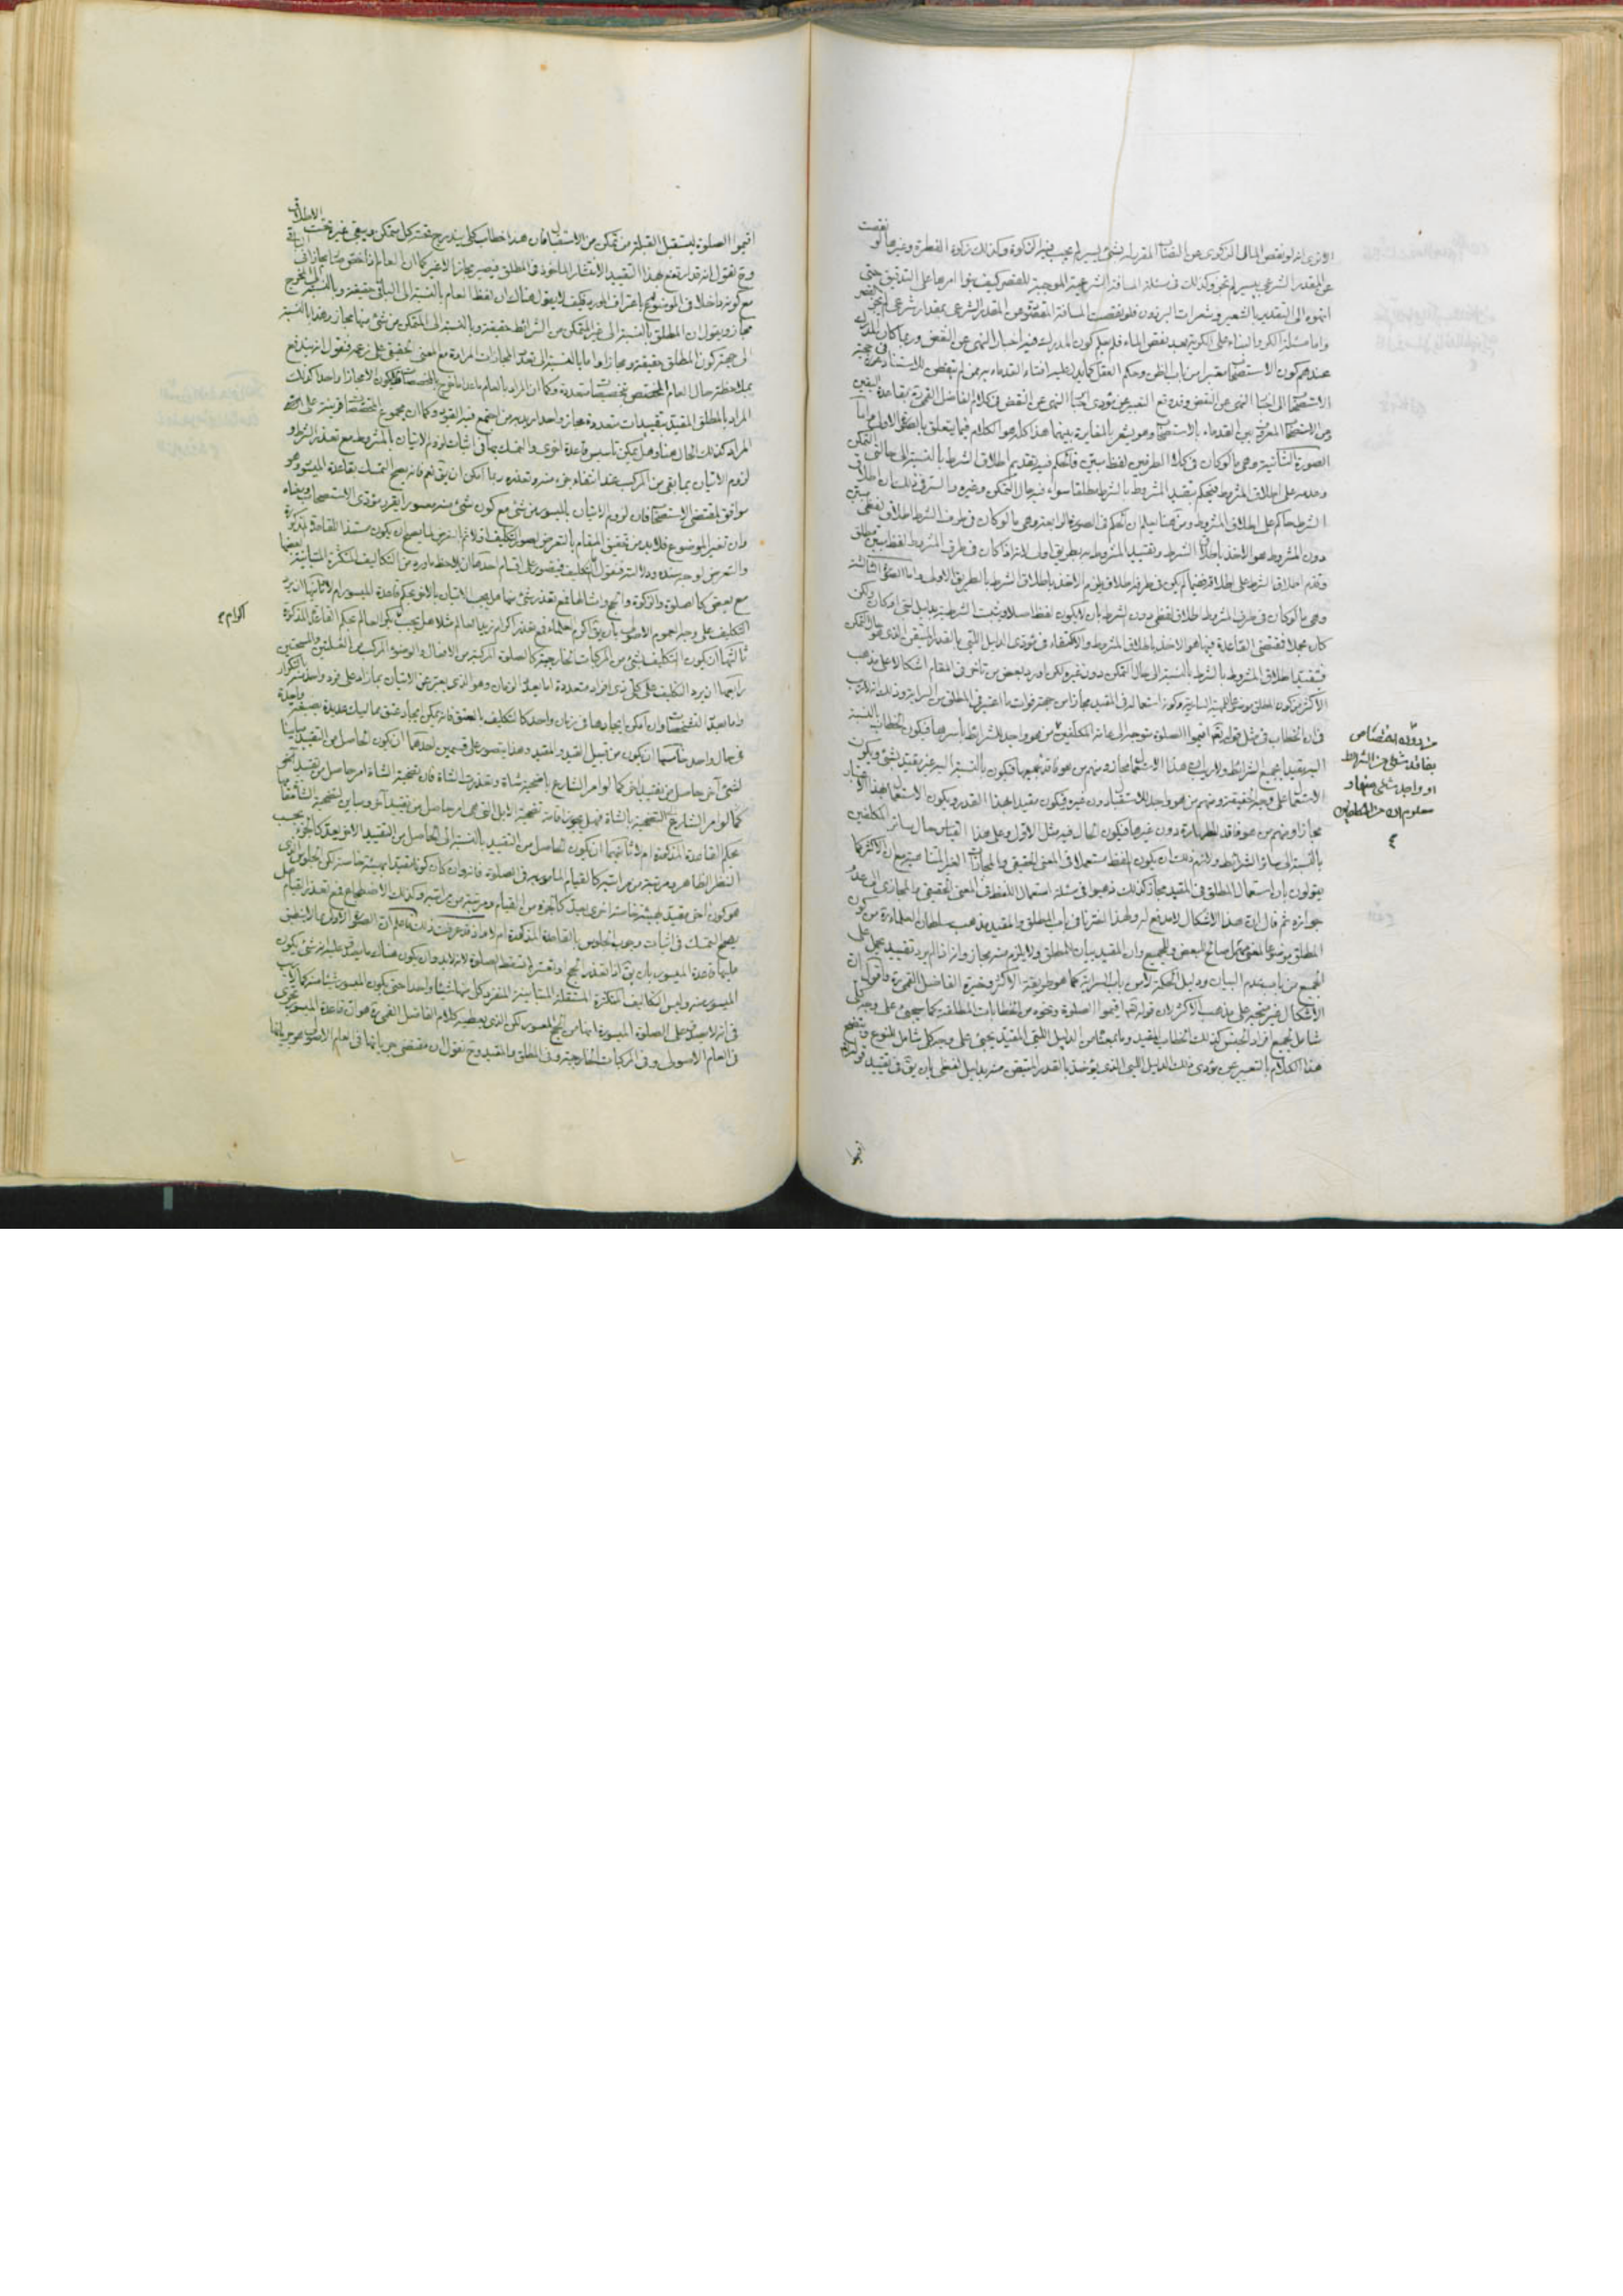 الاترى انه لو نقص المال الزكوى عن النصاب المقرر له بشئ يسير لم يجب فيه الزكوة وكذلك زكوة الفطرة وغيرها لو نقصت
عن المقدر الشرعى بيسير لم تجز وكذلك فى مسئلة المسافة الشرعية الموجبة للقصر كيف بنوا امرها على التدقيق حتى
انتهوا الى التقدير بالشعير وشعرات البرذون فلو نقصت المسافة عن المقدر الشرعى بمقدار شعرة
واما مسئلة الكر والبناء على الكرية بعد نقص الماء فلم يكون المدرك فيه اخبار النهى عن النقض وربما كان المدرك
عندهم كون الاستصحاب معتبرا من باب الظن وحكم العقل
الاستصحاب الى اخبار النهى عن النقض
الصورة الثانية وهى ما لو كان فى كلا الطرفين لفظ مبين فالحكم فيه تقديم اطلاق الشرط بالنسبة الى حالتى التمكن
وعدمه على اطلاق المشروط فيحكم بتقييد المشروط بالشرط مطلقا سواء فيه حال التمكن وغيره والسر فى ذلك ان اطلاق
الشرط حاكم على اطلاق المشروط ومن هنا يعلم ان الحكم فى الصورة الرابعة وهى ما لو كان فى طرف الشرط اطلاق لفظى مبين
دون المشروط هو الاخذ باطلاق الشرط وتقييد المشروط به بطريق اولى لانه اذا كان فى طرف المشروط لفظ مبين مطلق
وقدم اطلاق الشرط على اطلاقه فيما لم يكن فى طرفه اطلاق يلزم الاخذ باطلاق الشرط بالطريق الاولى واما الصورة الثالثة
وهى ما لو كان فى طرف المشروط اطلاق لفظى دون الشرط بان لا يكون لفظ اصلا ويثبت الشرطية بدليل لبى او كان ولكن
كان مجملا فمقتضى القاعدة فيها هو الاخذ باطلاق المشروط والاكتفاء فى مؤدى الدليل اللبى بالقدر المتيقن الذى هو حال التمكن
فيتقيد اطلاق المشروط بالشرط بالنسبة الى حال التمكن دون غيره ولكن اورد بعض من تاخر فى المقام اشكالا على مذهب
الاكثر من كون المطلق موضوعا للمهية السارية وكون استعماله فى المقيد مجازا من جهة فوات ما اعتبر فى المطلق من السراية وذلك انه لا ريب
فى ان الخطاب فى مثل قوله تعم اقيموا الصلوة متوجه الى عامة المكلفين فمن هو واجد للشرائط باسرها فيكون الخطاب بالنسبة
اليه مقيدا بجميع الشرائط ولا ريب ان هذا الاستعمال مجاز ومنهم من هو فاقد لجميعها فيكون بالنسبة اليه غير مقيد بشئ ويكون
الاستعمال على وجه الحقيقة ومنهم من هو واجد للاستقبال دون غيره فيكون مقيدا بهذا القدر ويكون الاستعمال بهذا الاعتبار
مجازا ومنهم من هو فاقد للطهارة دون غيرها فيكون الحال فيه مثل الاول وعلى هذا القياس حال سائر المكلفين
بالنسبة الى سائر الشرائط ولازم ذلك ان يكون اللفظ مستعملا فى المعنى الحقيقى والمجازات الغير المتناهية مع ان الاكثر كما
يقولون بان استعمال المطلق فى المقيد مجاز كذلك ذهبوا فى مسئلة استعمال اللفظ فى المعنى الحقيقى والمجازى الى عدم
جوازه ثم قال ان هذا الاشكال لا مدفع له ولهذا اخترنا فى باب المطلق والمقيد مذهب سلطان العلماء ره من كون
المطلق موضوعا لمعنى مهمل صالح للبعض والجميع وان المقيد بيان للمطلق ولا يلزم منه مجاز وانه اذا لم يرد تقييد يحمل على
الجميع من باب عدم البيان ودليل الحكمة لا من باب السراية كما هو طريقة الاكثر وخيرة الفاضل القمى ره واقول ان
الاشكال غير متجه على مذهب الاكثر لان قوله تعم اقيموا الصلوة ونحوه من الخطابات المطلقة كما يجئ على وجه كلى
شامل لجميع افراد الجنس كذلك الخطاب المقيد
هذا الكلام بالتعبير عن مؤدى ذلك الدليل اللبى الذى يؤخذ بالقدر المتيقن منه بدليل لفظى بان يق فى تقييد قوله
اقيموا
بفاقد شئ من الشرائط
او واجد شئ منها و
معلوم ان
اقيموا الصلوة ليستقبل القبلة من تمكن من الاستقبال فان هذا خطاب كلى يندرج تحته كل متمكن ويبقى غيره تحت الاطلاق
وح نقول انه قد ارتفع بهذا التقييد الانتشار الماخوذ فى المطلق فيصير مجازا لا غير كما ان العام اذا خص صار مجازا فى الباقى
مع كونه داخلا فى الموضوع له باعتراف المورد فكيف لا يقول هناك ان لفظ العام بالنسبة الى الباقى حقيقة وبالنسبة الى المخرج
مجاز ويقول ان المطلق بالنسبة الى غير المتمكن من الشرائط حقيقة وبالنسبة الى المتمكن من شئ منها مجاز هذا بالنسبة
الى جهة كون المطلق حقيقة ومجازا واما بالنسبة الى تعدد المجازات المرادة مع المعنى الحقيقى على زعمه فنقول انه يندفع
بملاحظة حال العام المخصص بتخصيصات متعددة فكما ان المراد بالعام ما عدا ما اخرج بالمخصصات فيكون الامجازا واحدا كذلك
المراد بالمطلق المقيد بتقييدات متعددة مجاز واحد اريد به من اجتمع فيه القيود وكما ان مجموع المخصصات قرينة على المراد
المراد كذلك الحال هنا وهل يمكن تاسيس قاعدة اخرى والتمسك بها فى اثبات لزوم الاتيان بالمشروط مع تعذر الشرط و
لزوم الاتيان بما بقى من المركب عند انتفاء جزء منه وتعذره ربما امكن ان يق نعم فانه يصح التمسك بقاعدة الميسور وهو
موافق لمقتضى الاستصحاب فان لزوم الاتيان بالميسور من شئ مع كون شئ منه معسورا يقرر مؤدى الاستصحاب
وان تغير الموضوع فلا بد من تحقيق المقام بالتعرض لصور التكليف اولا ثم التعرض لما يصح ان يكون مستندا للقاعدة المذكورة
والتعرض لوجه سنده ودلالته فنقول ان التكليف يتصور على اقسام احدها ان يلاحظ ما ورد من التكاليف المتكثرة المتباينة بعضها
مع بعض كالصلوة والزكوة والحج وامثالها فمع تعذر شئ منها هل يجب الاتيان بالاخر بحكم قاعدة الميسور ام لا ثانيها ان يرد
التكليف على وجه العموم الاصولى بان يق اكرم العلماء فمع تعذر اكرام زيد العالم مثلا هل يجب بكر العالم بحكم القاعدة المذكورة
ثالثها ان يكون التكليف بشئ من المركبات الخارجية كالصلوة المركبة من الافعال والوضوء المركب من الغسلتين والمسحتين
رابعها ان يرد التكليف على كلى ذى افراد متعددة اما بحد الزمان وهو الذى يعبر عن الاتيان بما زاد على فرد واحد منه بالتكرار
واما بعدد التشخصات وان امكن ايجادها فى زمان واحد كالتكليف بالعتق فانه يمكن ايجاد عتق مماليك عديدة بصيغة واحدة
فى حال واحد خامسها ان يكون من قبيل القيد والمقيد وهذا يتصور على قسمين احدهما ان يكون الحاصل من التقييد مباينا
لشئ آخر حاصل من تقييد اخر كما لو امر الشارع باضحية شاة وتعذرت الشاة فان تضحية الشاة امر حاصل من تقييد
بحكم القاعدة المذكورة ام لا ثانيهما ان يكون الحاصل من التقييد بالنسبة الى الحاصل من التقييد الاخر يعد كالجزء بحسب
النظر الظاهر ومرتبة من مراتبه كالقيام المامور به فى الصلوة فانه وان كان كونا مقيدا بهيئة خاصة لكن الجلوس الذى
هو كون اخر مقيد بهيئة خاصة اخرى يعد كالجزء من القيام ومرتبة من مراتبه وكذلك الاضطجاع فمع تعذر القيام هل
يصح التمسك فى اثبات وجوب الجلوس بالقاعدة المذكورة ام لا واذ قد عرفت ذلك فاعلم ان الصورة الاولى مما لا ينطبق
عليها قاعدة الميسور بان يق اذا تعذر الحج او تعسر لم تسقط الصلوة لانه لا بد وان يكون هناك ما يصدق عليه انه شئ يكون
الميسور منه وليس التكاليف المتكثرة المستقلة المتباينة المنفرد كل منها شيئا واحدا حتى يكون الميسور شيئا منه كما لا ريب
فى انه لا يصدق على الصلوة الميسورة انها من الحج المعسور لكن الذى يعطيه كلام الفاضل القمى ره هو ان قاعدة الميسور تجرى
فى العام الاصولى وفى المركبات الخارجية وفى المطلق والمقيد وح نقول ان مقتضى جريانها فى العام الاصولى هو جريانها
اكرام